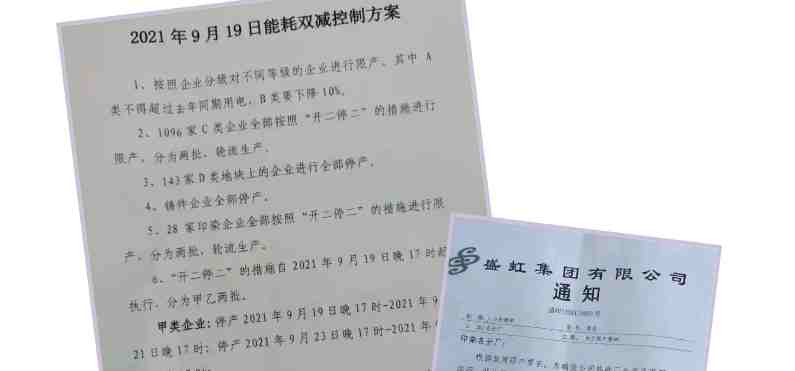 2021 年 9 月 19 日能耗双减控制方案
1、按照企业分级对不同等级的企业进行限产。其中 A
类不得超过去年同期用电，B 类要下降 10%。
2、1096 家 C 类企业全部按照“开二停二”的措施进行
限产，分为两批，轮流生产。
3、143 家 D 类地块上的企业进行全部停产。
4、铸件企业全部停产。
5、28 家印染企业全部按照“开二停二”的措施进行限
产，分为两批，轮流生产。
6、“开二停二”的措施自 2021 年 9 月 19 日晚 17 时起
执行，分为甲乙两批。
甲类企业：停产 2021 年 9 月 19 日晚 17 时-2021 年 9
21 日晚 17 时；停产 2021 年 9 月 23 日晚 17 时-2021 年
盛虹集团有限公司
通知
印染各分厂：